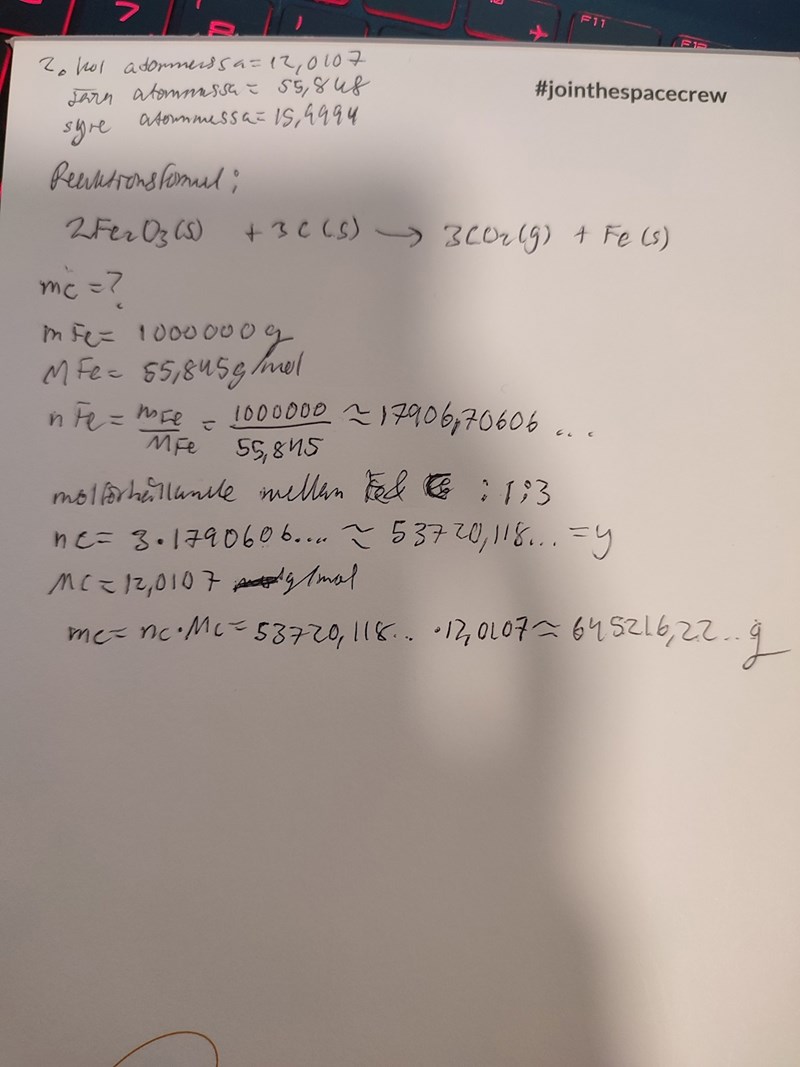 7
8
F11
F12
#jointhespacecrew
2. kol atommassa = 12,0107
Järn atommassa = 55,848
syre atommassa = 15,9994
Reaktionsformel;
2Fe2O3(s) + 3C(s) → 3CO2(g) + Fe(s)
mc = ?
mFe = 1000000g
MFe = 55,845g/mol
nFe = mFe/MFe = 1000000/55,845 ≈ 17906,70606...
molförhållande mellan : 1;3
nc = 3·1790606.... ≈ 53720,118... = y
Mc = 12,0107 g/mol
mc = nc·Mc = 53720,118.. ·12,0107 ≈ 645216,22.. g